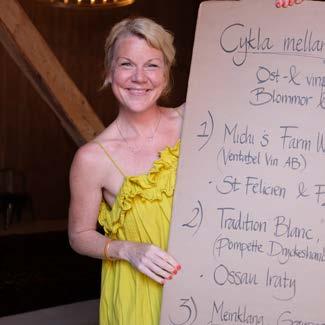 Cykla mellan
Ost- & vin
Blommor &
1) Michi's Farm W
(Ventabel Vin AB)
· St Félicien & F
2) Tradition Blanc,
(Pompette Dryckeshand
· Ossau Iraty
3) Meinklang